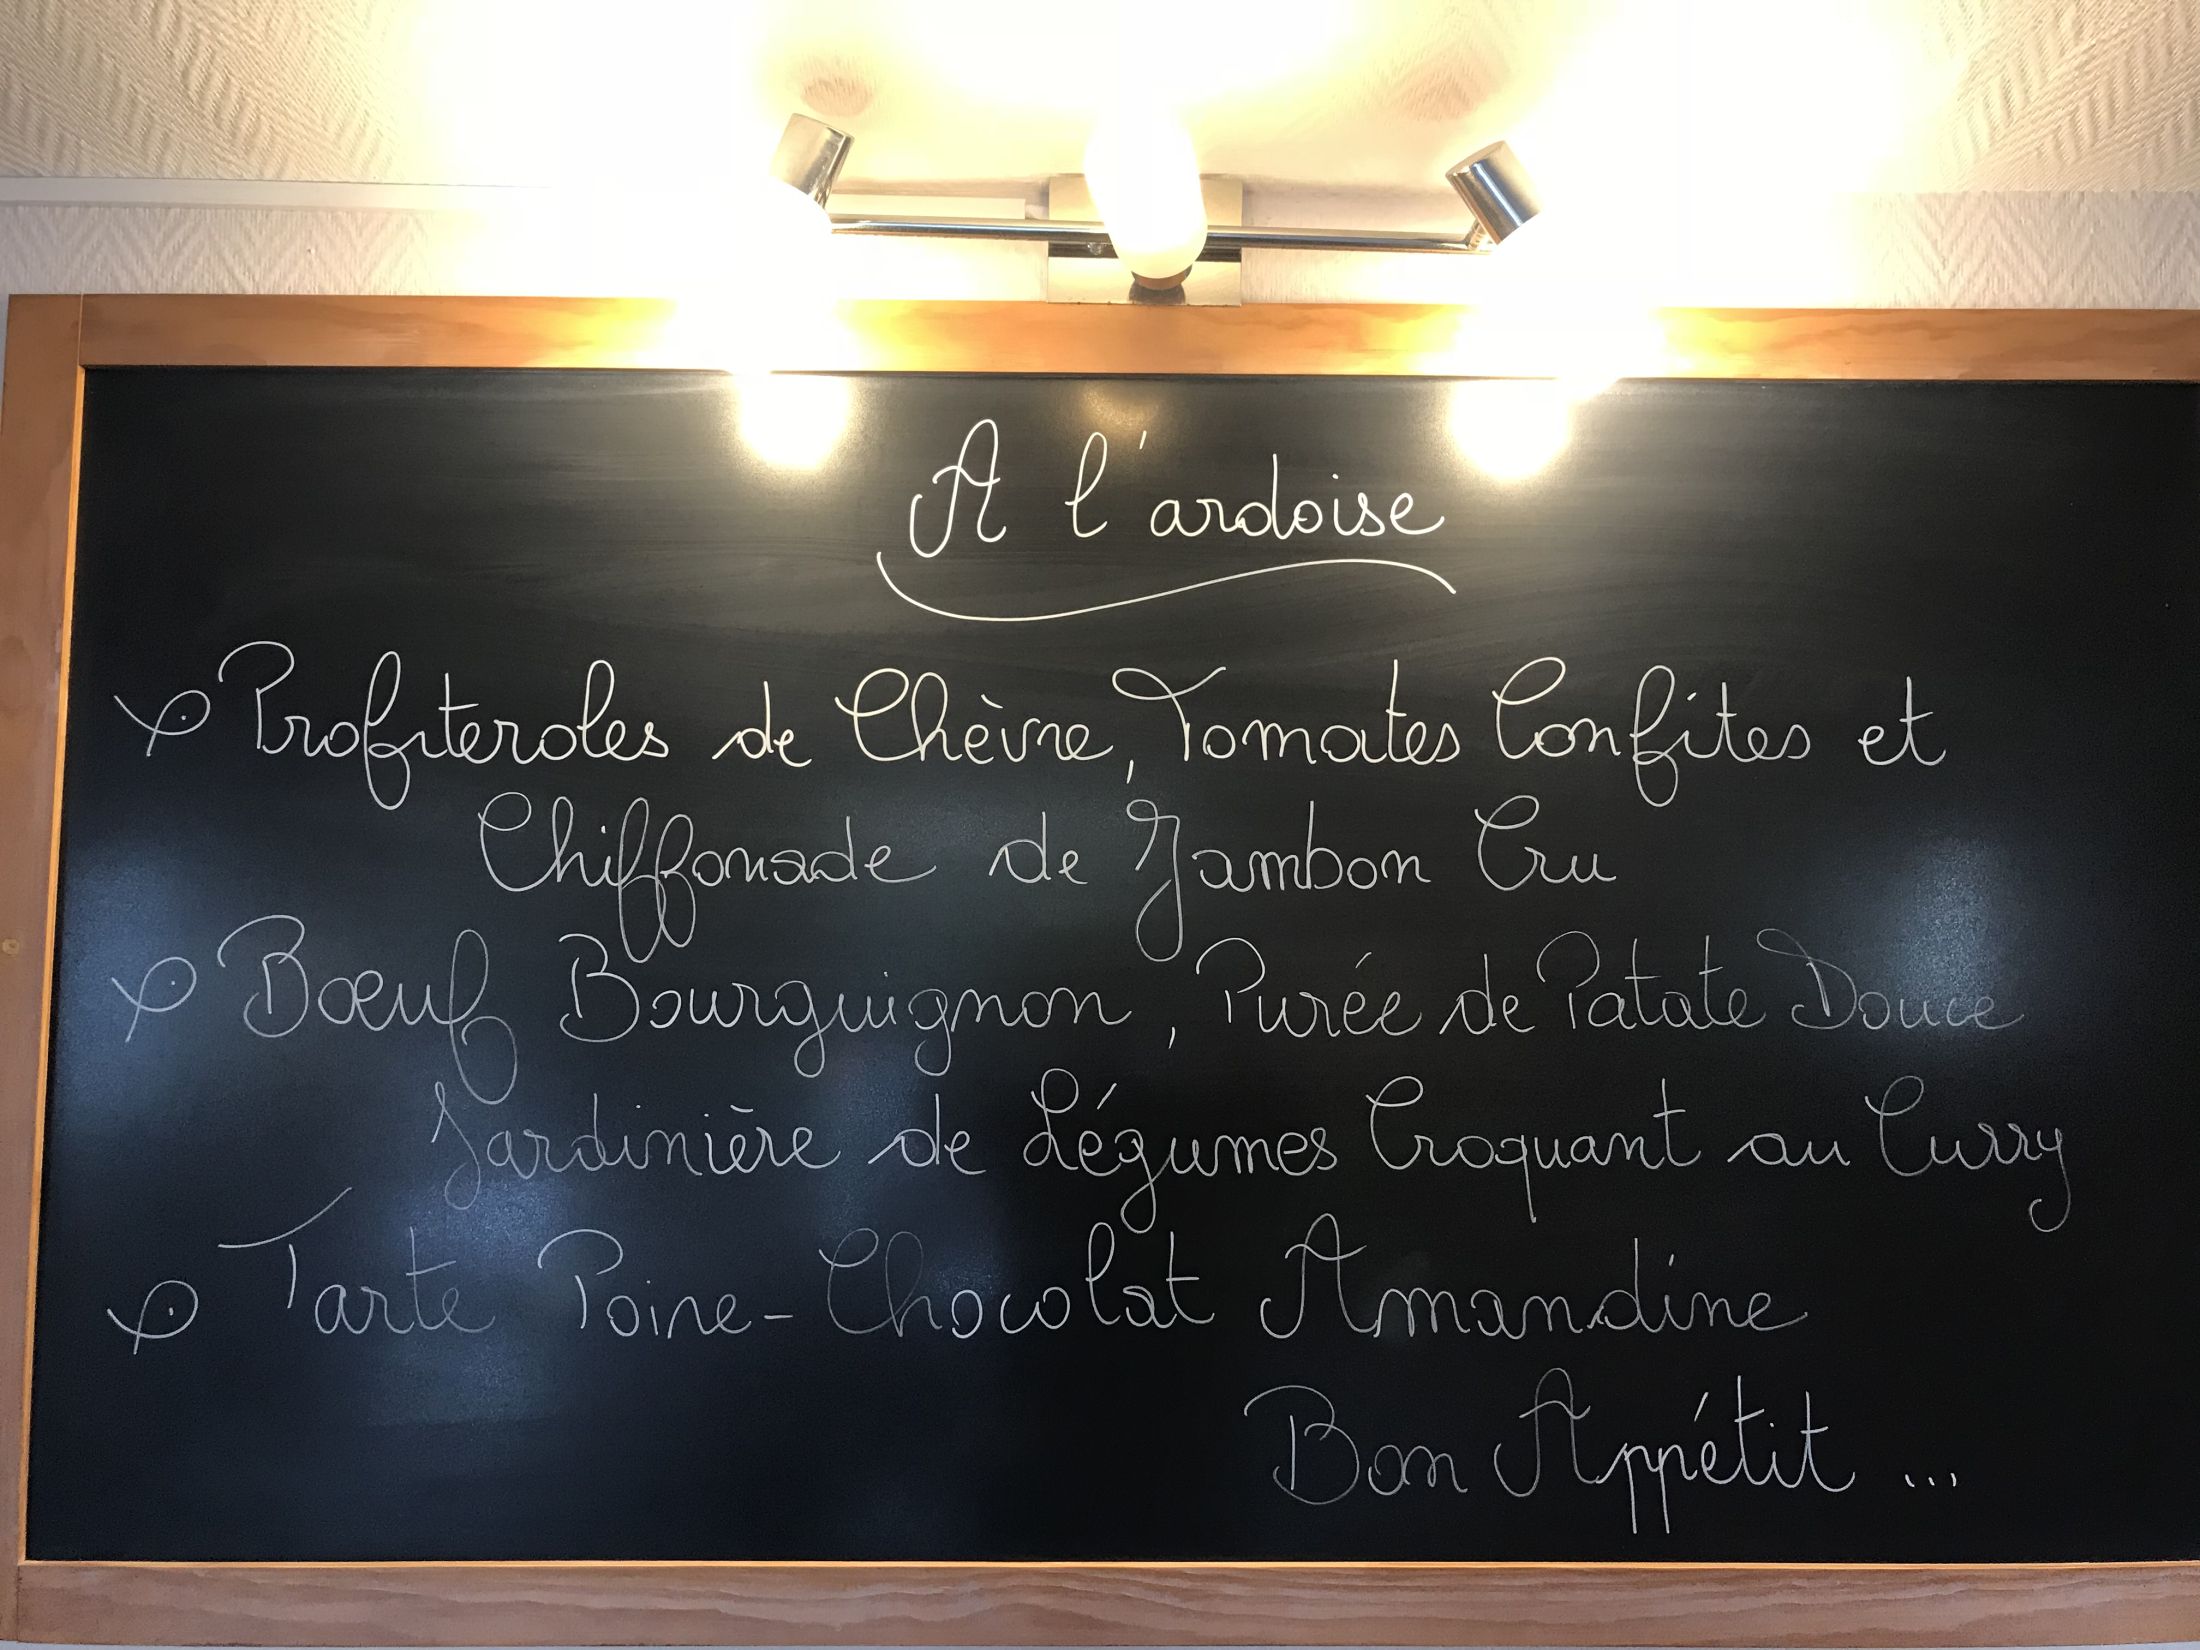 A l'ardoise
Profiteroles de Chèvre, Tomates Confites et
Chiffonade de Jambon Cru
Bœuf Bourguignon, Purée de Patate Douce
Jardinière de Légumes Croquant au Curry
Tarte Poire-Chocolat Amandine
Bon Appétit ...